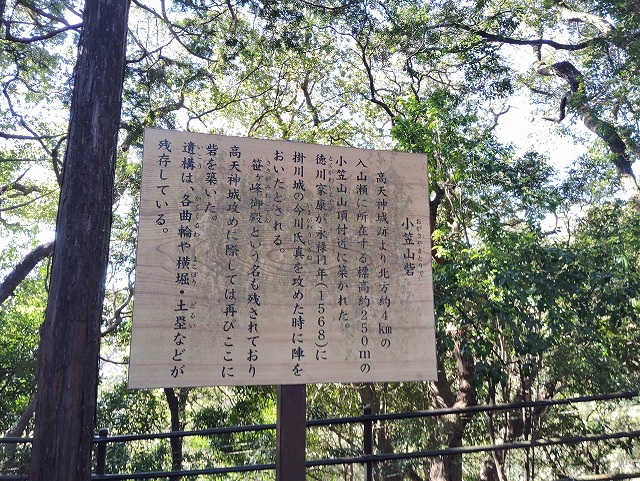 小笠山砦
おがさやまとりで
高天神城跡より北方約4㎞の
入山瀬に所在する標高約250mの
小笠山山頂付近に築かれた。
徳川家康が永禄11年(1568)に
掛川城の今川氏真を攻めた時に陣を
おいたとされる。
笹ヶ峰御殿という名も残されており
高天神城攻めに際しては再びここに
砦を築いた。
遺構は、各曲輪や横堀・土塁などが
いこう
よこぼり
どるい
残存している。